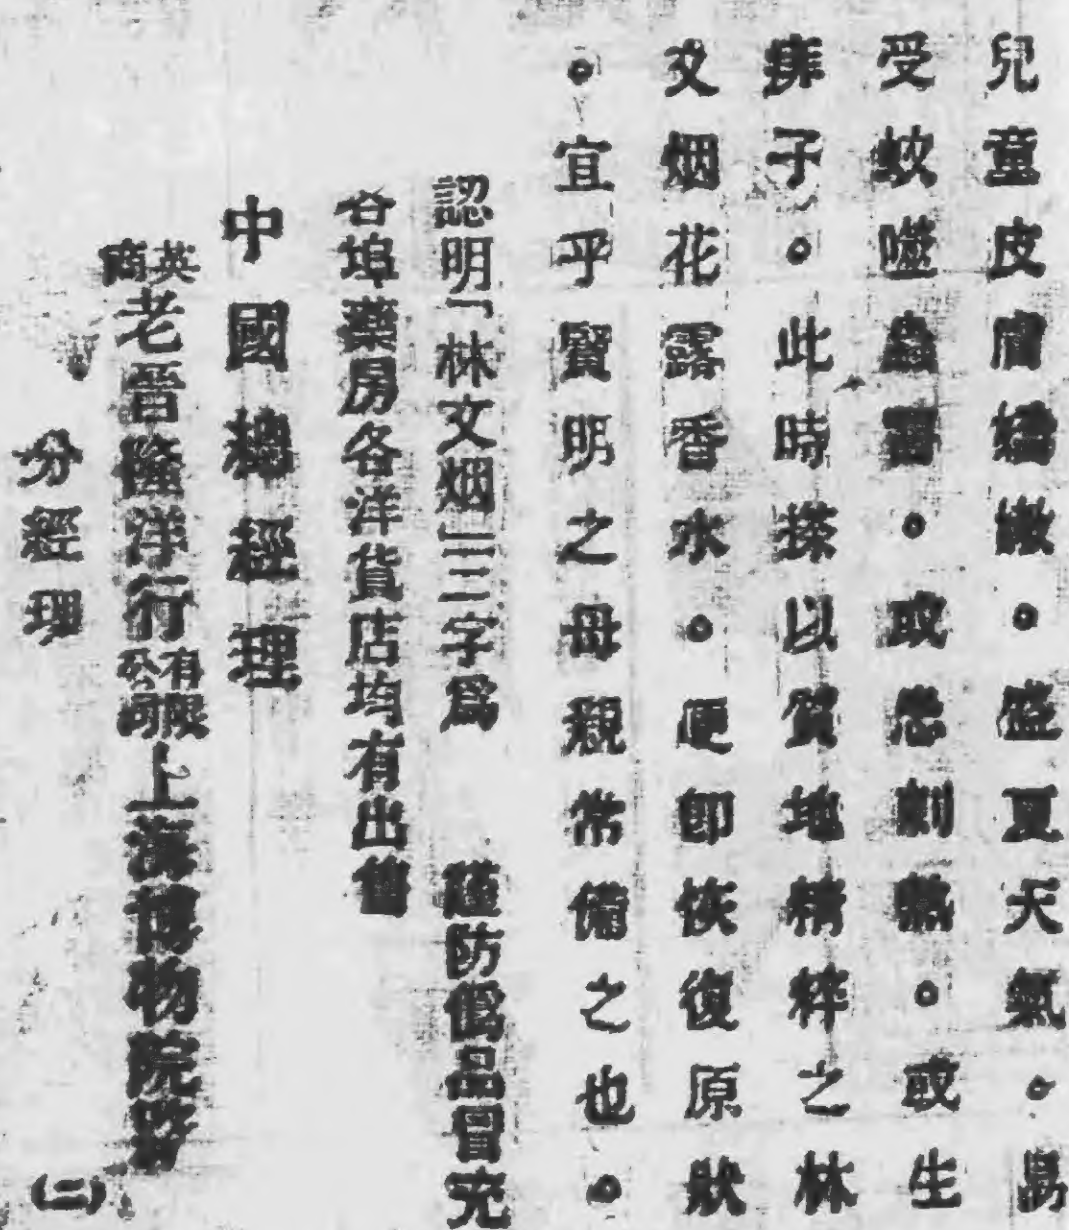 兒童皮膚嬌嫩。盛夏天氣。易
受蚊噬蟲嚙。或患劇熱。或生
痱子。此時搽以質地精粹之林
文烟花露香水。便即恢復原狀
。宜乎賢明之母親常備之也。
認明「林文烟」三字爲 謹防僞品冒充
各埠藥房各洋貨店均有出售
中國總經理
英商老晋隆洋行有限公司上海博物院路
分經理
(二)